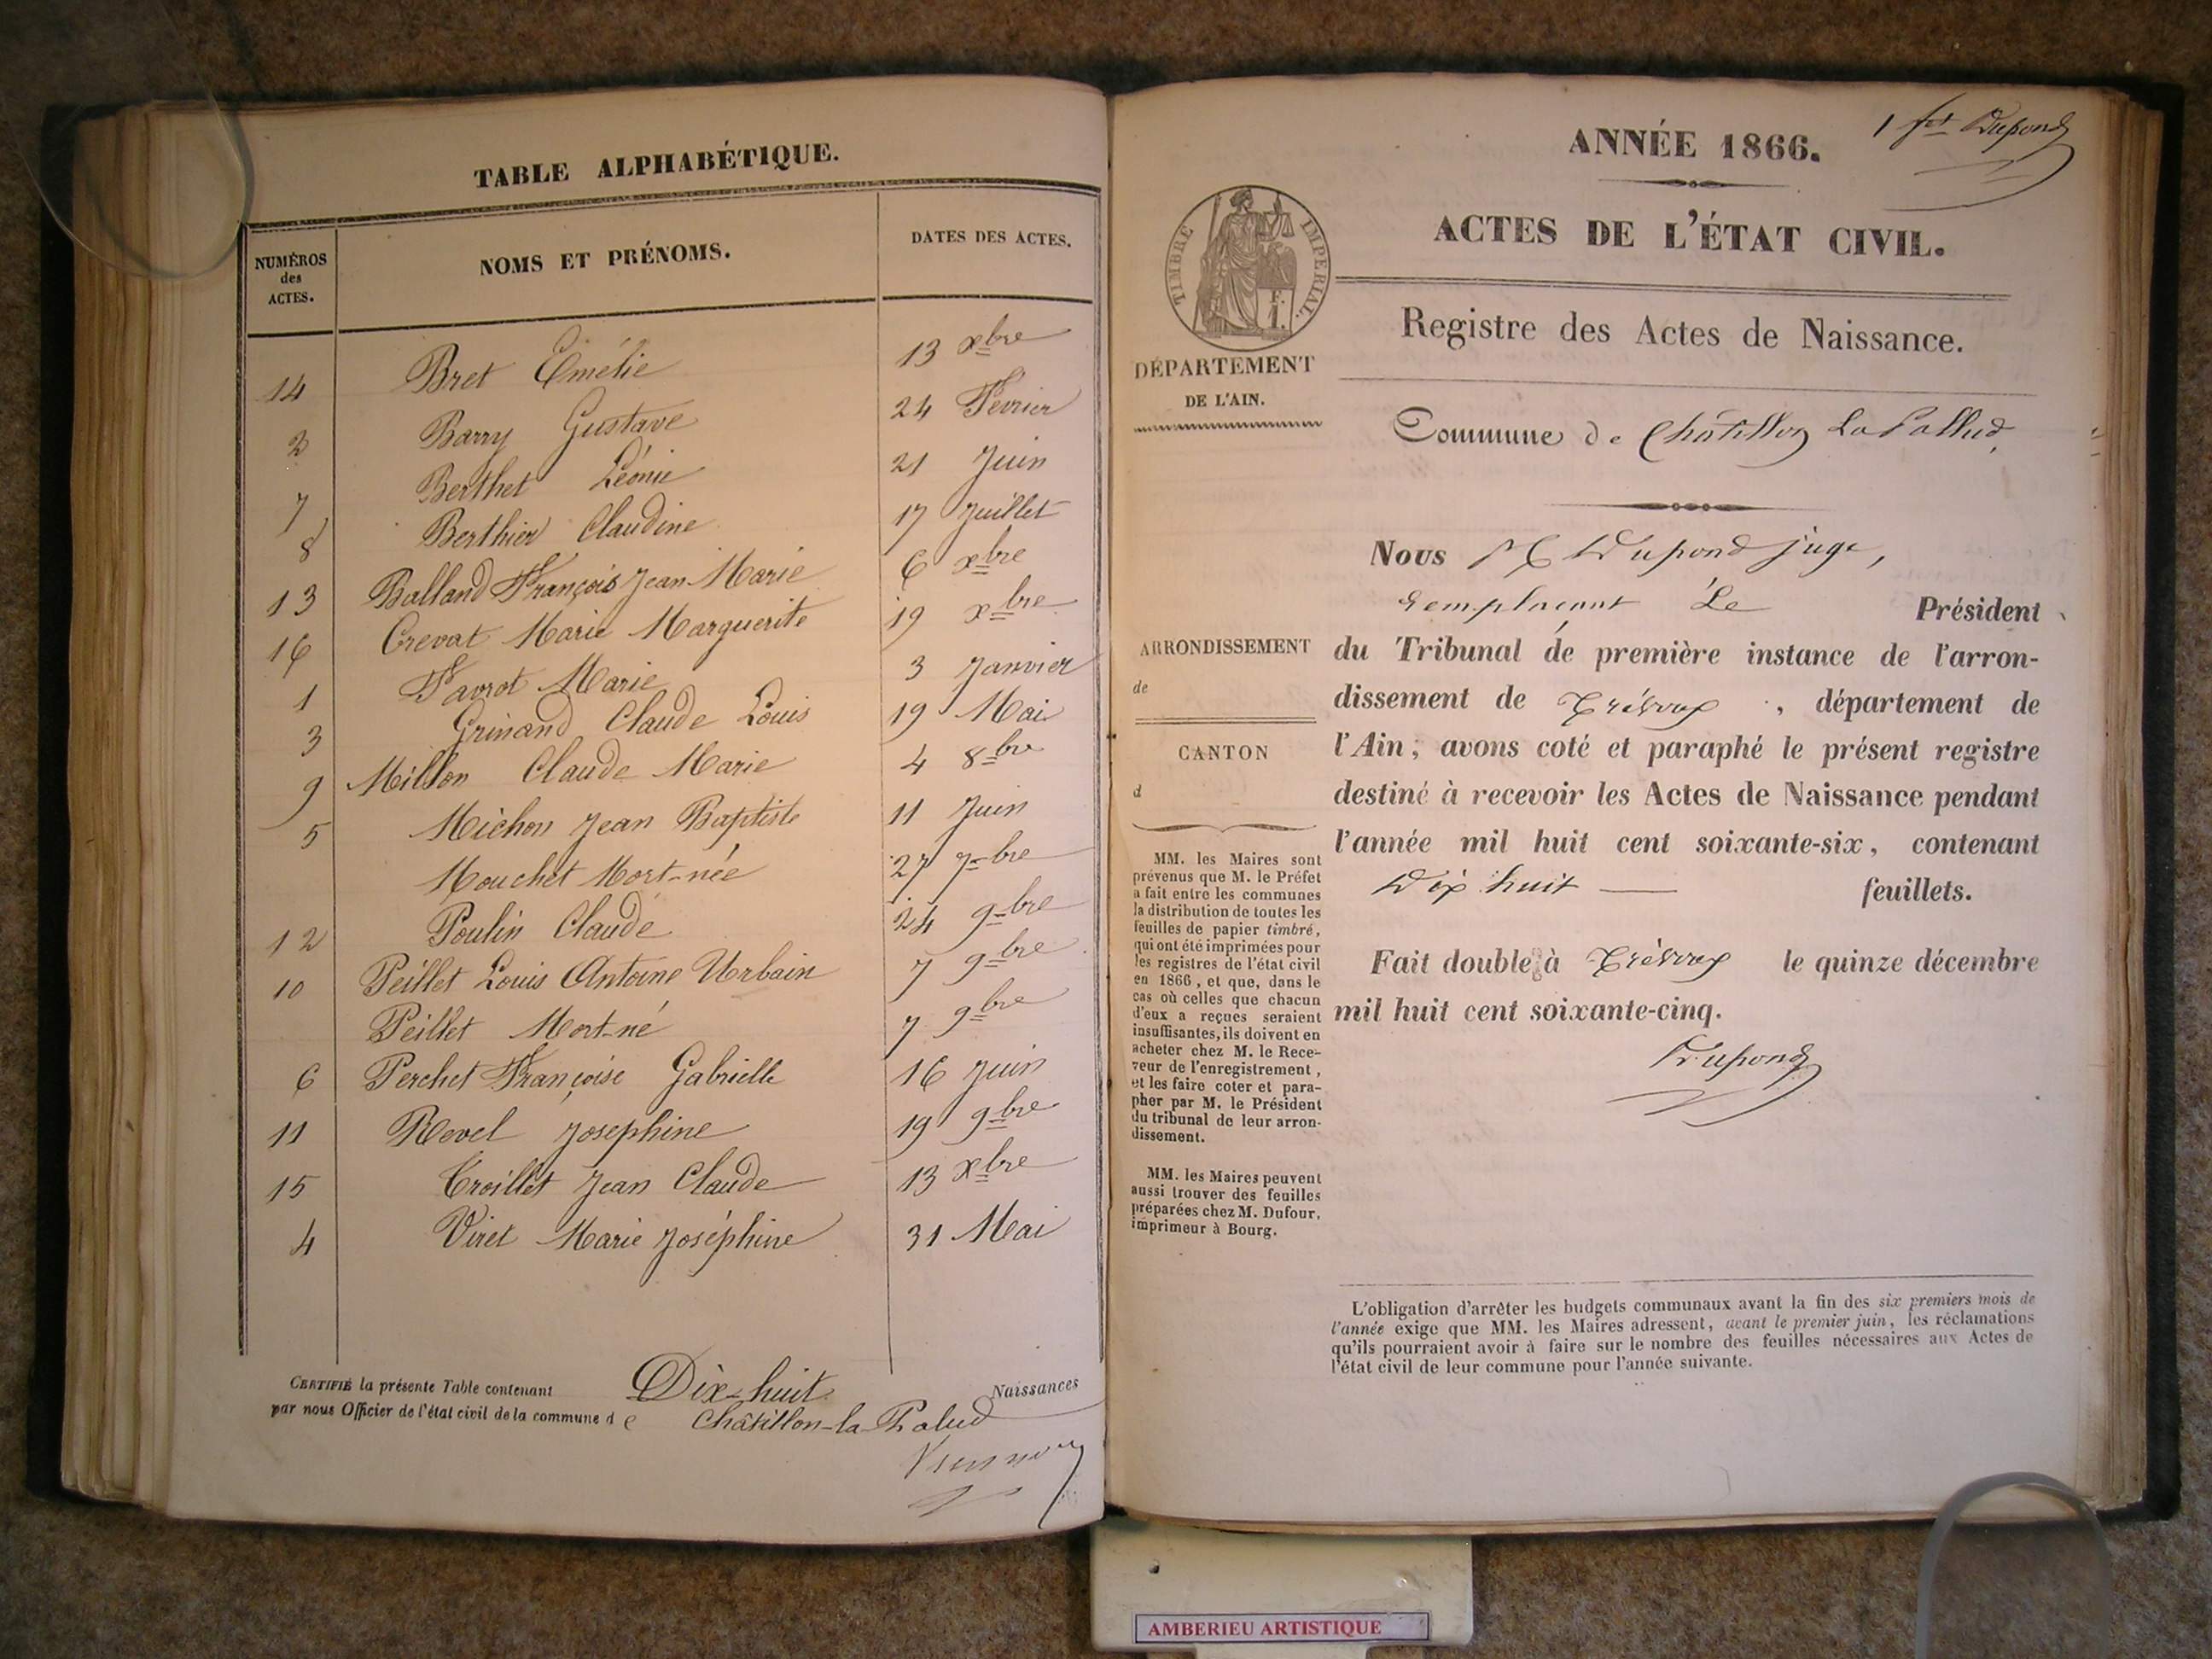 TABLE ALPHABÉTIQUE.
NUMÉROS des ACTES. NOMS ET PRÉNOMS. DATES DES ACTES.
14 Bret Emélie 13 xbre
2 Barry Gustave 24 Février
7 Berthet Léonie 21 Juin
8 Berthier Claudine 17 Juillet
13 Balland François Jean-Marie 6 xbre
16 Crevat Marie Marguerite 19 xbre
1 Favrot Marie 3 Janvier
3 Grinand Claude Louis 19 Mai
9 Millon Claude Marie 4 8bre
5 Michon Jean Baptiste 11 Juin
Mouchet Mort-née 27 7bre
12 Poulin Claude 24 9bre
10 Peillet Louis Antoine Urbain 7 9bre
Peillet Mort-né 7 9bre
6 Perchet Françoise Gabrielle 16 Juin
11 Revel Josephine 19 9bre
15 Troillet Jean Claude 13 xbre
4 Viret Marie Joséphine 31 Mai
CERTIFIÉ la présente Table contenant Dix-huit Naissances
par nous Officier de l'état civil de la commune de Châtillon-la-Palud
1 fet Dupond
ANNÉE 1866.
ACTES DE L'ÉTAT CIVIL.
TIMBRE IMPÉRIAL.
1 F.
Registre des Actes de Naissance.
DÉPARTEMENT
DE L'AIN.
Commune de Châtillon La Pallud,
Nous Dupond juge,
remplaçant Le Président
ARRONDISSEMENT
de
CANTON
d
du Tribunal de première instance de l'arron-
dissement de Trévoux, département de
l'Ain, avons coté et paraphé le présent registre
destiné à recevoir les Actes de Naissance pendant
l'année mil huit cent soixante-six, contenant
Dix huit feuillets.
Fait double à Trévoux le quinze décembre
mil huit cent soixante-cinq.
Dupond
MM. les Maires sont
prévenus que M. le Préfet
a fait entre les communes
la distribution de toutes les
feuilles de papier timbré,
qui ont été imprimées pour
les registres de l'état civil
en 1866, et que, dans le
cas où celles que chacun
d'eux a reçues seraient
insuffisantes, ils doivent en
acheter chez M. le Rece-
veur de l'enregistrement,
et les faire coter et para-
pher par M. le Président
du tribunal de leur arron-
dissement.
MM. les Maires peuvent
aussi trouver des feuilles
préparées chez M. Dufour,
imprimeur à Bourg.
L'obligation d'arrêter les budgets communaux avant la fin des six premiers mois de
l'année exige que MM. les Maires adressent, avant le premier juin, les réclamations
qu'ils pourraient avoir à faire sur le nombre des feuilles nécessaires aux Actes de
l'état civil de leur commune pour l'année suivante.
AMBERIEU ARTISTIQUE